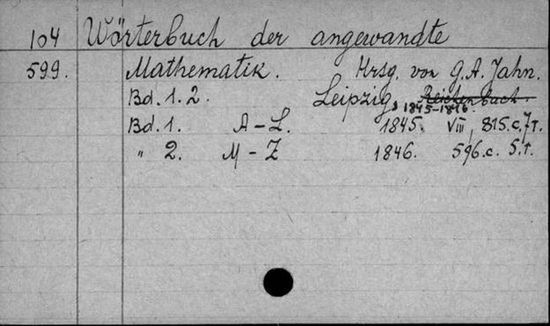 104 Wörterbuch der angewandte
599. Mathematik. Hrsg. von G.A. Jahn.
Bd. 1. 2. Leipzig, Reichenbach.
1845-1846.
Bd. 1. A-L. 1845. VIII, 815.c. 7т.
" 2. M-Z 1846. 596.c. 5.т.